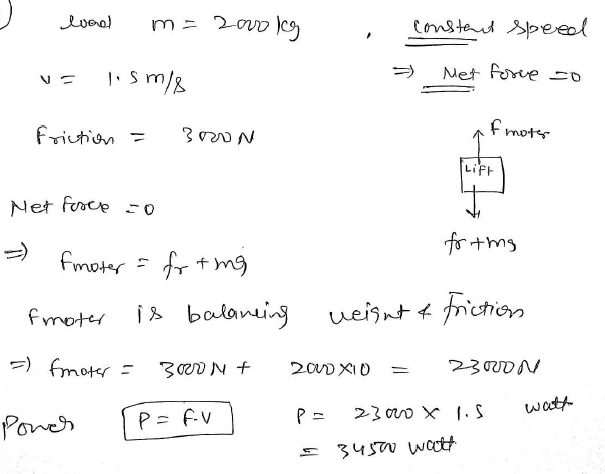 load m = 2000 kg , constant speed
v = 1.5 m/s ⇒ Net force = 0
friction = 3000 N
F moter
Lift
fr + mg
Net force = 0
⇒ fmoter = fr + mg
fmoter is balancing weight & friction
⇒ fmoter = 3000 N + 2000×10 = 23000 N
Power P = F.V P = 23000 × 1.5 watt
= 34500 watt